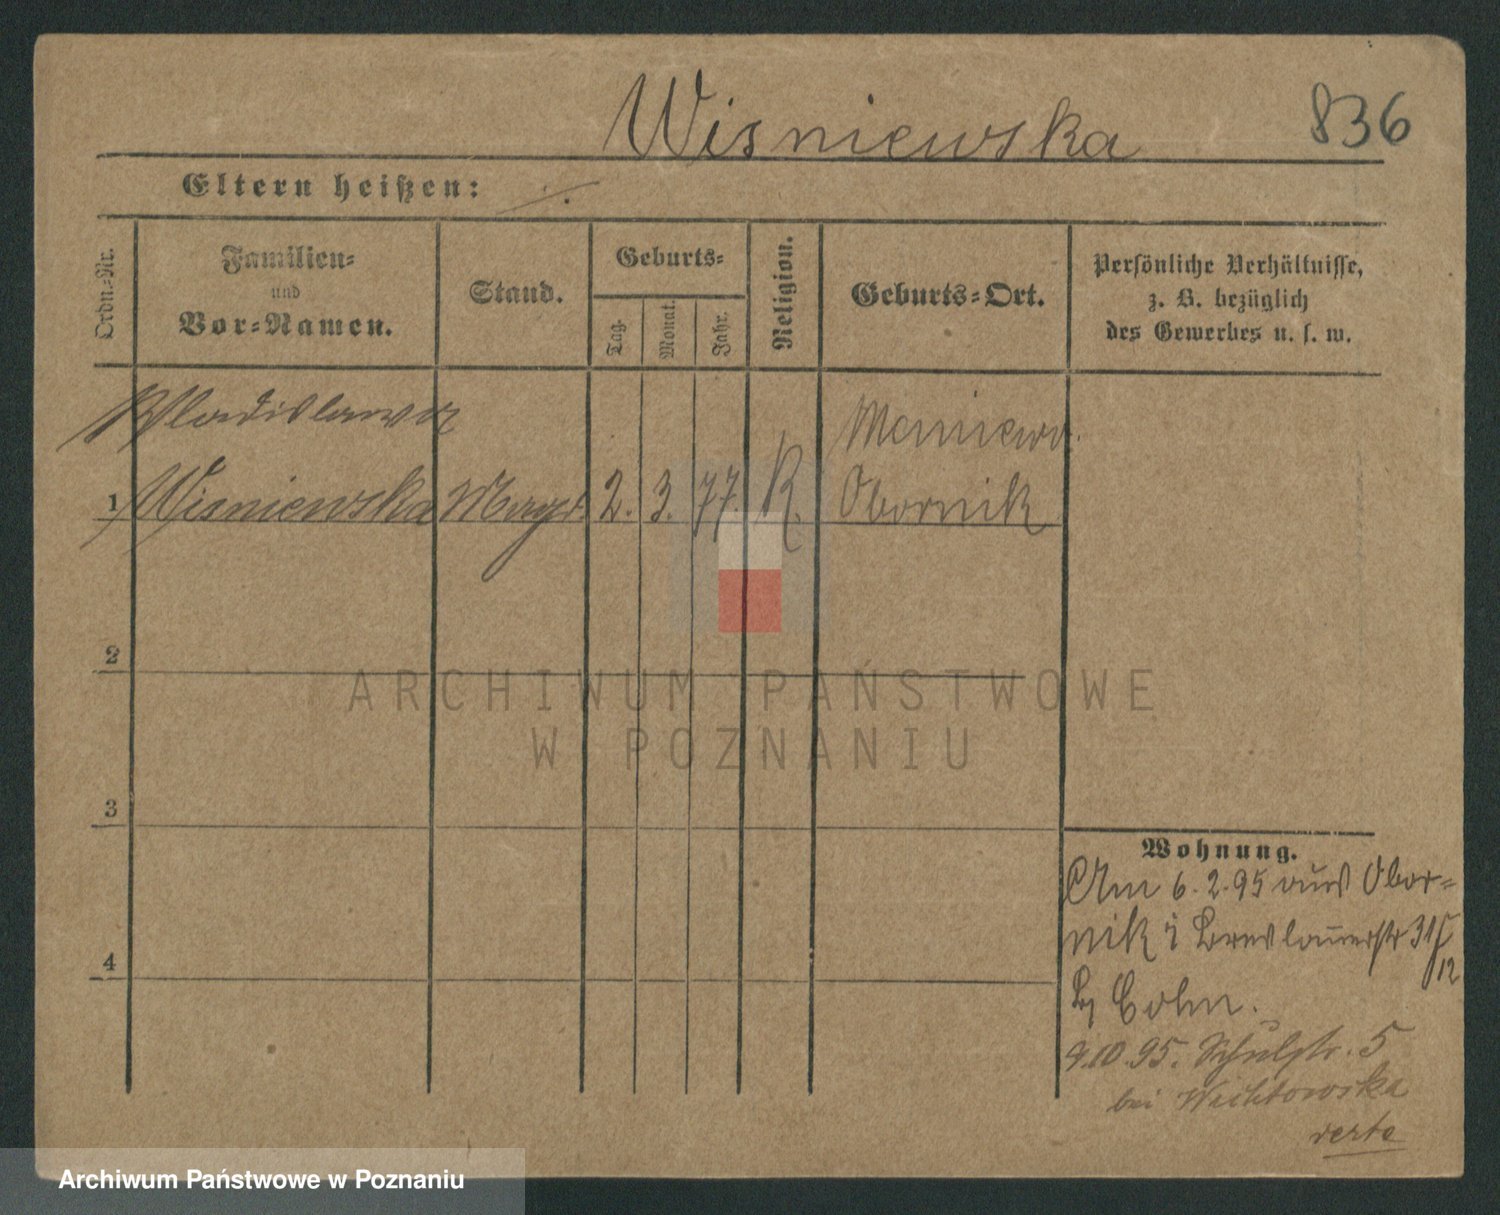 Wisniewska
836
Eltern heißen: ./.
Ordn.-Nr.
Familien-
und
Vor-Namen.
Stand.
Geburts-
Tag.
Monat.
Jahr.
Religion.
Geburts-Ort.
Persönliche Verhältnisse,
z. B. bezüglich
des Gewerbes u. s. w.
Wladislawa
1 Wisniewska Magd. 2. 3. 77. K. Obornik
2
3
4
ARCHIWUM PAŃSTWOWE
W POZNANIU
Wohnung.
Am 6.2.95 aus Obor-
nik i Breslauerstr 31/12
Cohn.
9.10.95. Schulstr. 5
bei
verte
Archiwum Państwowe w Poznaniu